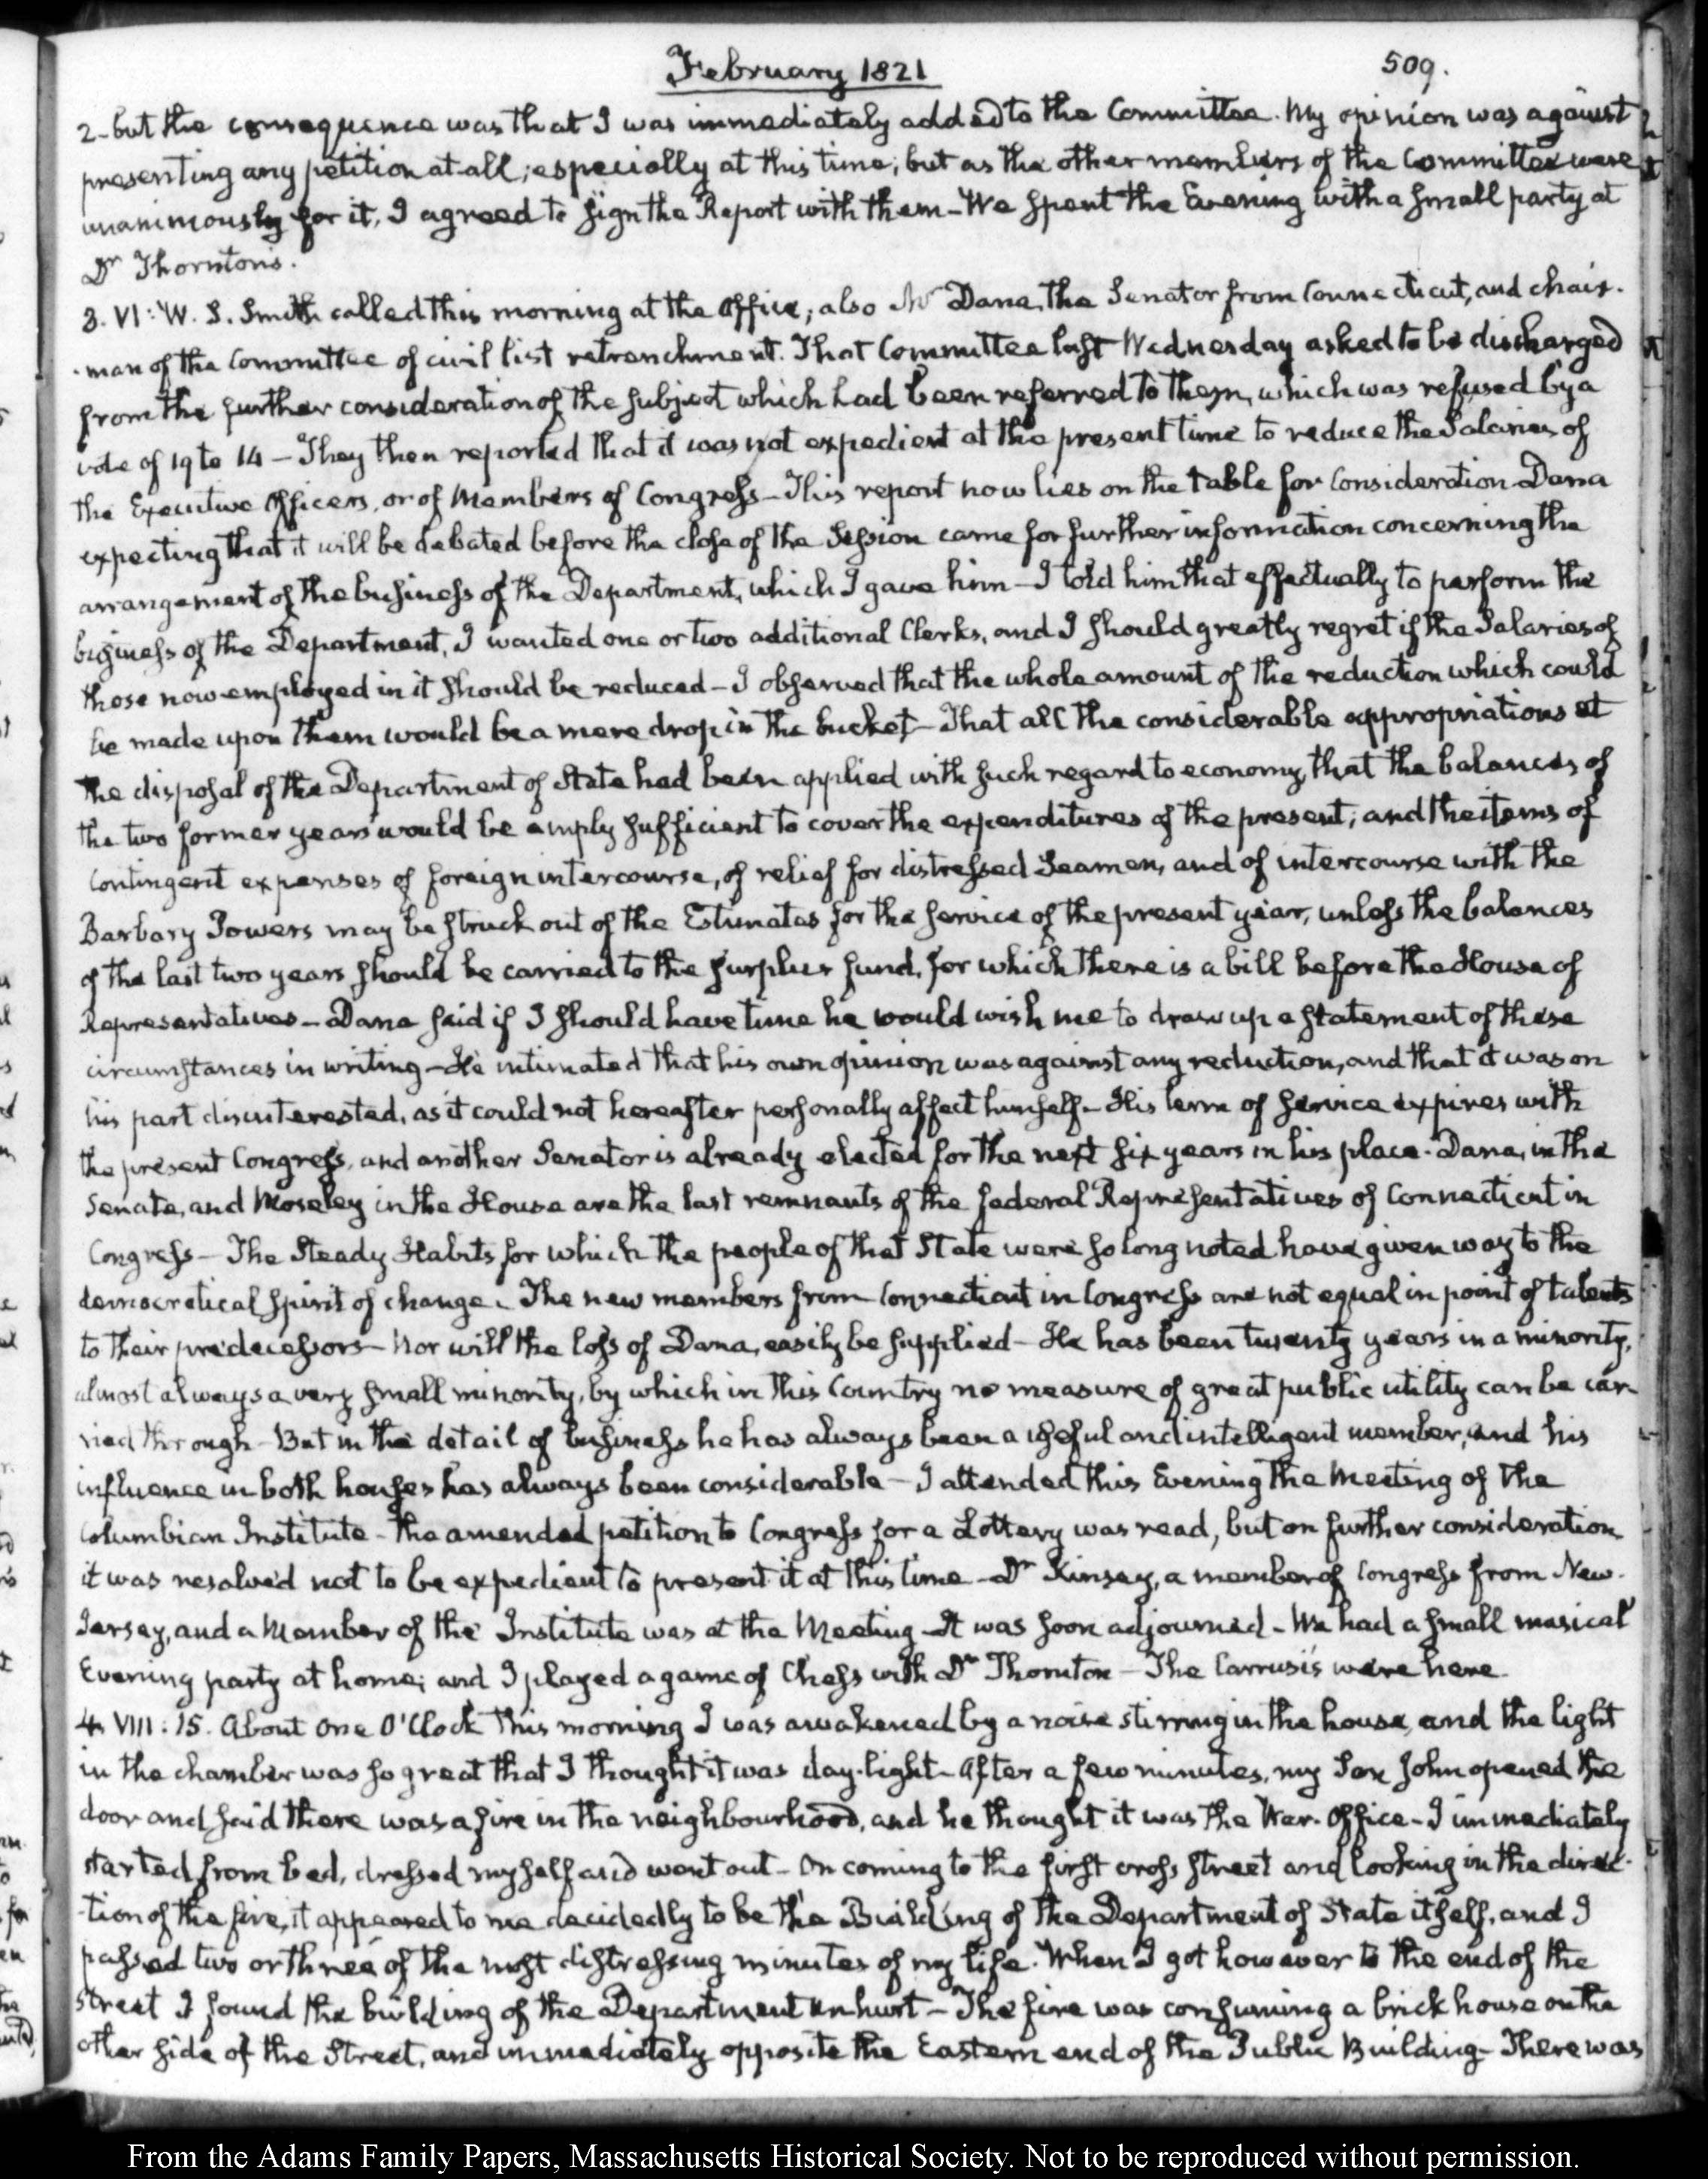 February 1821
509.
2- but the consequence was that I was immediately added to the Committee. My opinion was against
presenting any petition at all; especially at this time; but as the other members of the Committee were
unanimously for it, I agreed to sign the Report with them – We spent the Evening with a small party at
Dr Thornton's.
3. VI: W. S. Smith called this morning at the Office; also Mr Dana, the Senator from Connecticut, and chair-
-man of the Committee of civil list retrenchment. That Committee last Wednesday asked to be discharged
from the further consideration of the subject which had been referred to them, which was refused by a
vote of 19 to 14 – They then reported that it was not expedient at the present time to reduce the Salaries of
the Executive Officers, or of Members of Congress – This report now lies on the table for consideration – Dana
expecting that it will be debated before the close of the Session came for further information concerning the
arrangement of the business of the Department, which I gave him – I told him that effectually to perform the
business of the Department, I wanted one or two additional Clerks, and I should greatly regret if the Salaries of
those now employed in it should be reduced – I observed that the whole amount of the reduction which could
be made upon them would be a mere drop in the bucket – That all the considerable appropriations at
the disposal of the Department of State had been applied with such regard to economy, that the balances of
the two former years would be amply sufficient to cover the expenditures of the present; and the items of
Contingent expenses of foreign intercourse, of relief for distressed Seamen, and of intercourse with the
Barbary Powers may be struck out of the Estimates for the service of the present year, unless the balances
of the last two years should be carried to the surplus fund, for which there is a bill before the House of
Representatives – Dana said if I should have time he would wish me to draw up a statement of these
circumstances in writing – He intimated that his own opinion was against any reduction, and that it was on
his part disinterested, as it could not hereafter personally affect himself – His term of service expires with
the present Congress, and another Senator is already elected for the next six years in his place. Dana, in the
Senate, and Moseley in the House are the last remnants of the federal Representatives of Connecticut in
Congress – The Steady Habits for which the people of that State were so long noted have given way to the
democratical spirit of change. The new members from Connecticut in Congress are not equal in point of talents
to their predecessors – Nor will the loss of Dana, easily be supplied – He has been twenty years in a minority,
almost always a very small minority, by which in this Country no measure of great public utility can be car-
ried through – But in the detail of business he has always been a useful and intelligent member, and his
influence in both houses has always been considerable – I attended this Evening the Meeting of the
Columbian Institute – The amended petition to Congress for a Lottery was read, but on further consideration
it was resolved not to be expedient to present it at this time – Dr Kinsey, a member of Congress from New-
Jersey, and a Member of the Institute was at the Meeting – It was soon adjourned – We had a small musical
Evening party at home; and I played a game of Chess with Dr Thornton – The Carrusi's were here.
4. VIII: 15. About One O'Clock this morning I was awakened by a noise stirring in the house, and the light
in the chamber was so great that I thought it was day-light – After a few minutes, my Son John opened the
door and said there was a fire in the neighbourhood, and he thought it was the War-Office – I immediately
started from bed, dressed myself and went out – On coming to the first cross street and looking in the direc-
-tion of the fire, it appeared to me decidedly to be the Building of the Department of State itself, and I
passed two or three of the most distressing minutes of my life. When I got however to the end of the
street I found the building of the Department unhurt – The fire was consuming a brick house on the
other side of the Street, and immediately opposite the Eastern end of the Public Building – There was
From the Adams Family Papers, Massachusetts Historical Society. Not to be reproduced without permission.